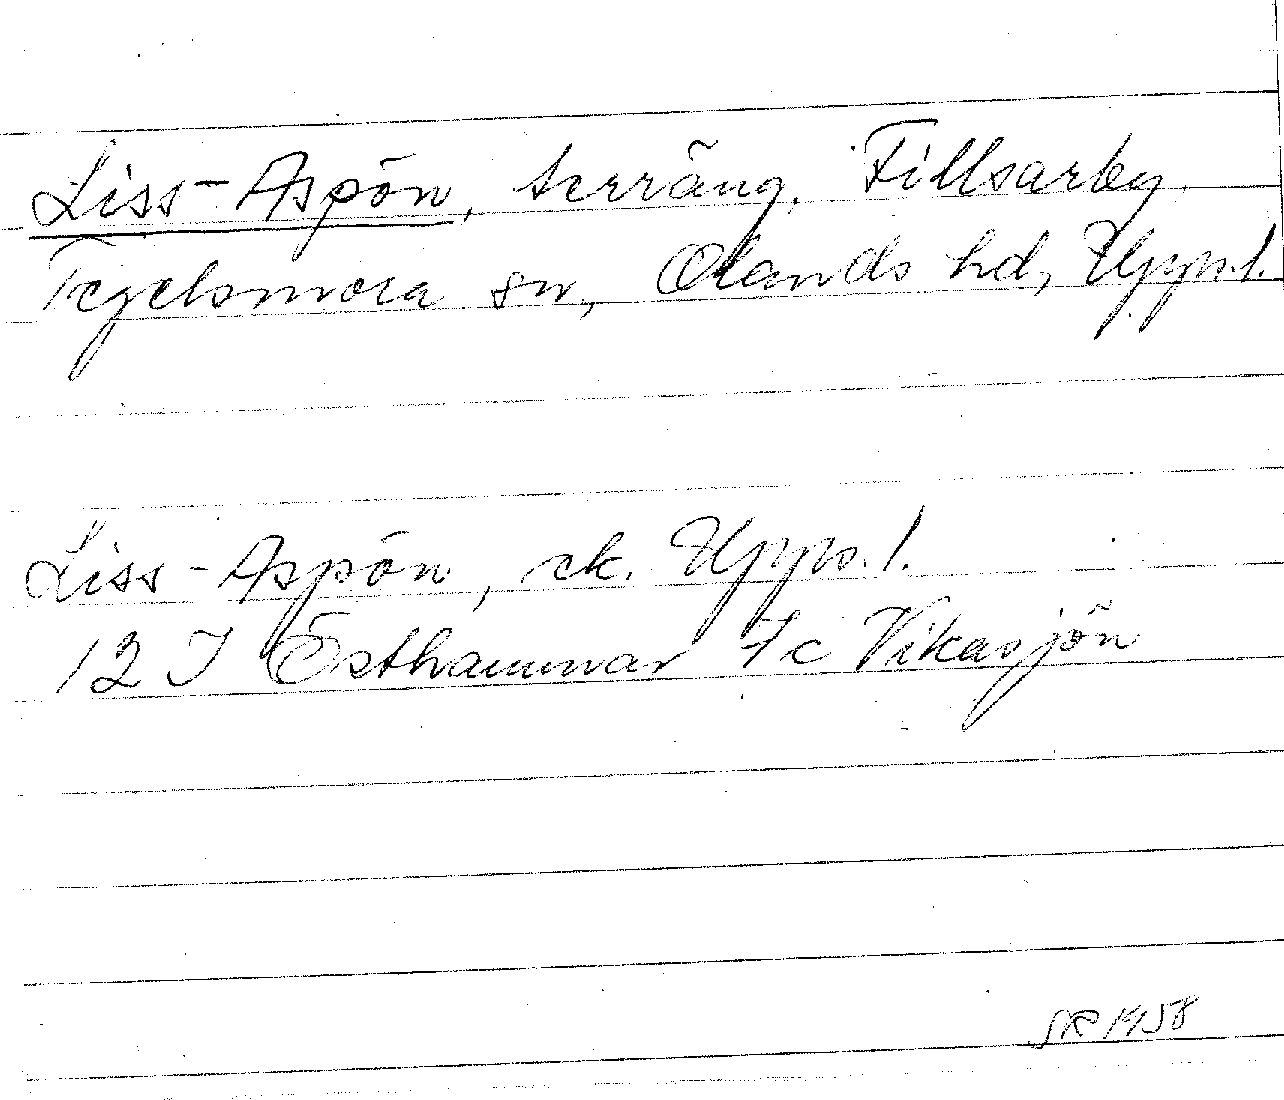 Liss-Aspön, terräng, Fillsarby
Tegelsmora sn, Olands hd, Upps.l.
Liss-Aspön, ek. Upps.l.
12 I Östhammar 7c Vikasjön
1958